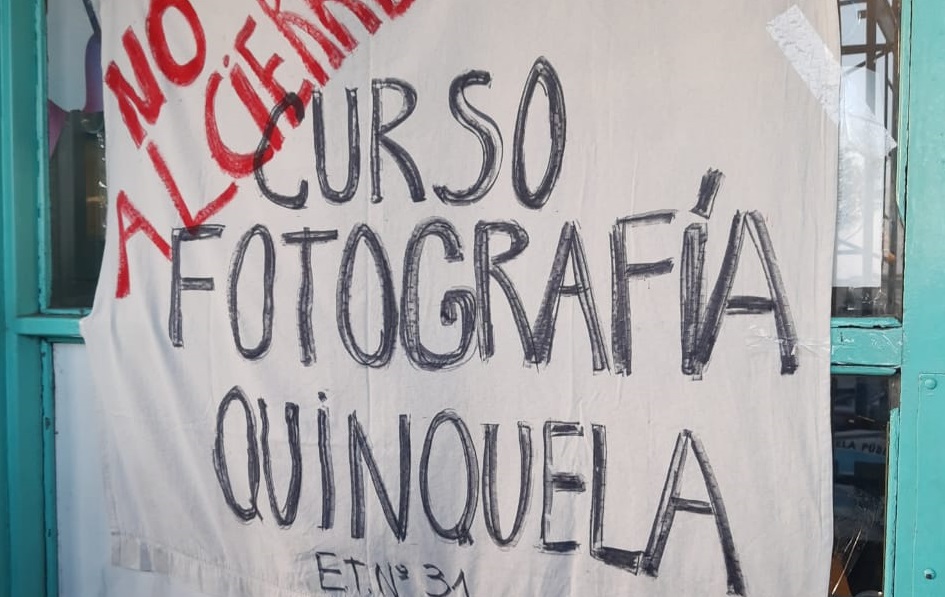 NO
AL CIERRE
CURSO
FOTOGRAFÍA
QUiNQUELA
E.T. Nº 31